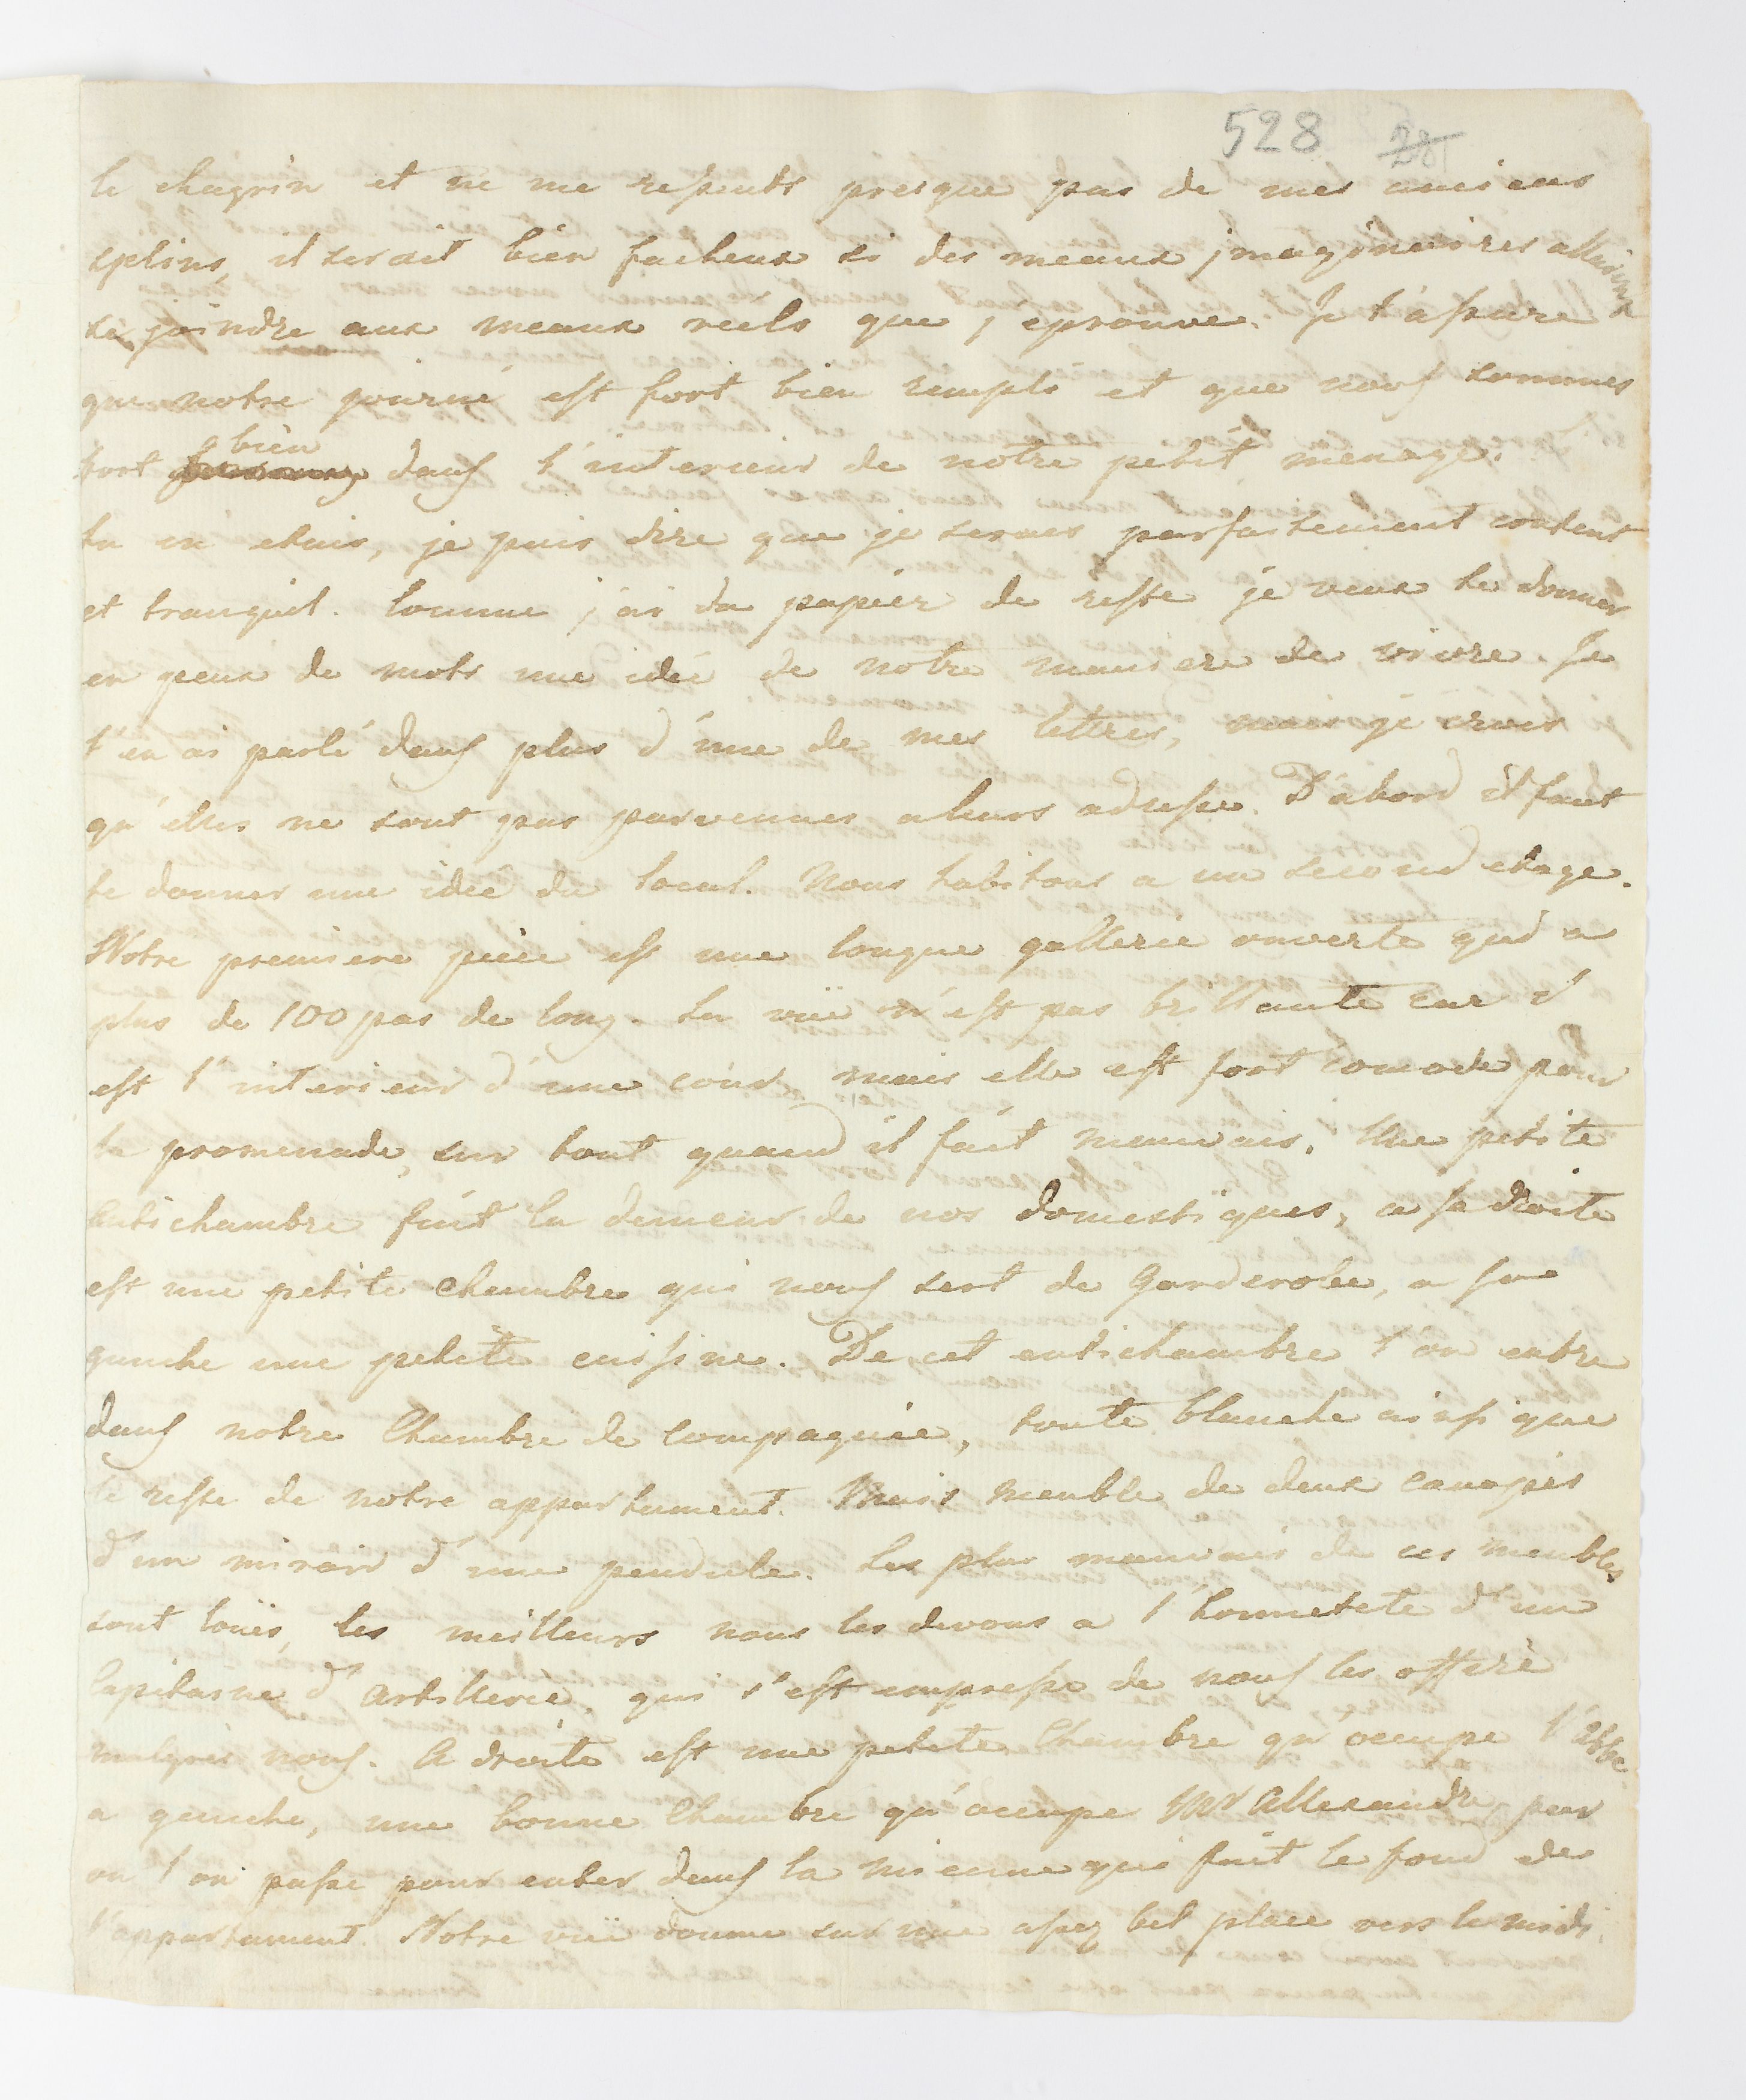 528 28
le chagrin et ne me resents presque pas de mes anciens
splins, il serait bien facheux si des meaux imaginaires allaient
se joindre aux meaux reels que j'eprouve. Je t'assure
que notre journé est fort bien rempli et que nous sommes
fort bien dans l'interieur de notre petit menage.
tu en etais, je puis dire que je serais parfaitement content
et tranquil. Comme j'ai du papier de reste je veux te donner
en peux de mots une idée de notre maniere de vivre. Je
t'en ai parlé dans plus d'une de mes lettres, mais je crois
qu'elles ne sont pas parvenues a leurs adresse. D'abord il faut
te donner une idée du local. Nous habitons a un second etage.
Notre premiere piéce est une longue gallerie ouverte qui a
plus de 100 pas de long. La vüe n'est pas brillante car c'
est l'interieur d'une cour, mais elle est fort comode pour
la promenade, sur tout quand il fait mauvais. Une petite
antichambre fait la demeur de nos domestiques, a sa droite
est une petite chambre qui nous sert de Garderobe, a sa
gauche une petite cuisine. De cet antichambre l'on entre
dans notre Chambre de Compagnie, toute blanche ainsi que
le reste de notre appartament. Mais meuble de deux canapés
d'un miroir d'une pendule. Les plus mauvais de ces meubles
sont loués, les meilleurs nous les devons a l'honnetete d'un
Capitaine d'Artillerie, qui s'est empressé de nous les offrire
malgrés nous. A droite est une petite Chambre qu'occupe l'abbé.
a gauche, une bonne Chambre qu'occupe Mr Allexandre, par
ou l'on passe pour enter dans la mienne qui fait le fond de
l'appartament. Notre vüe donne sur une assez bel place vers le midi.